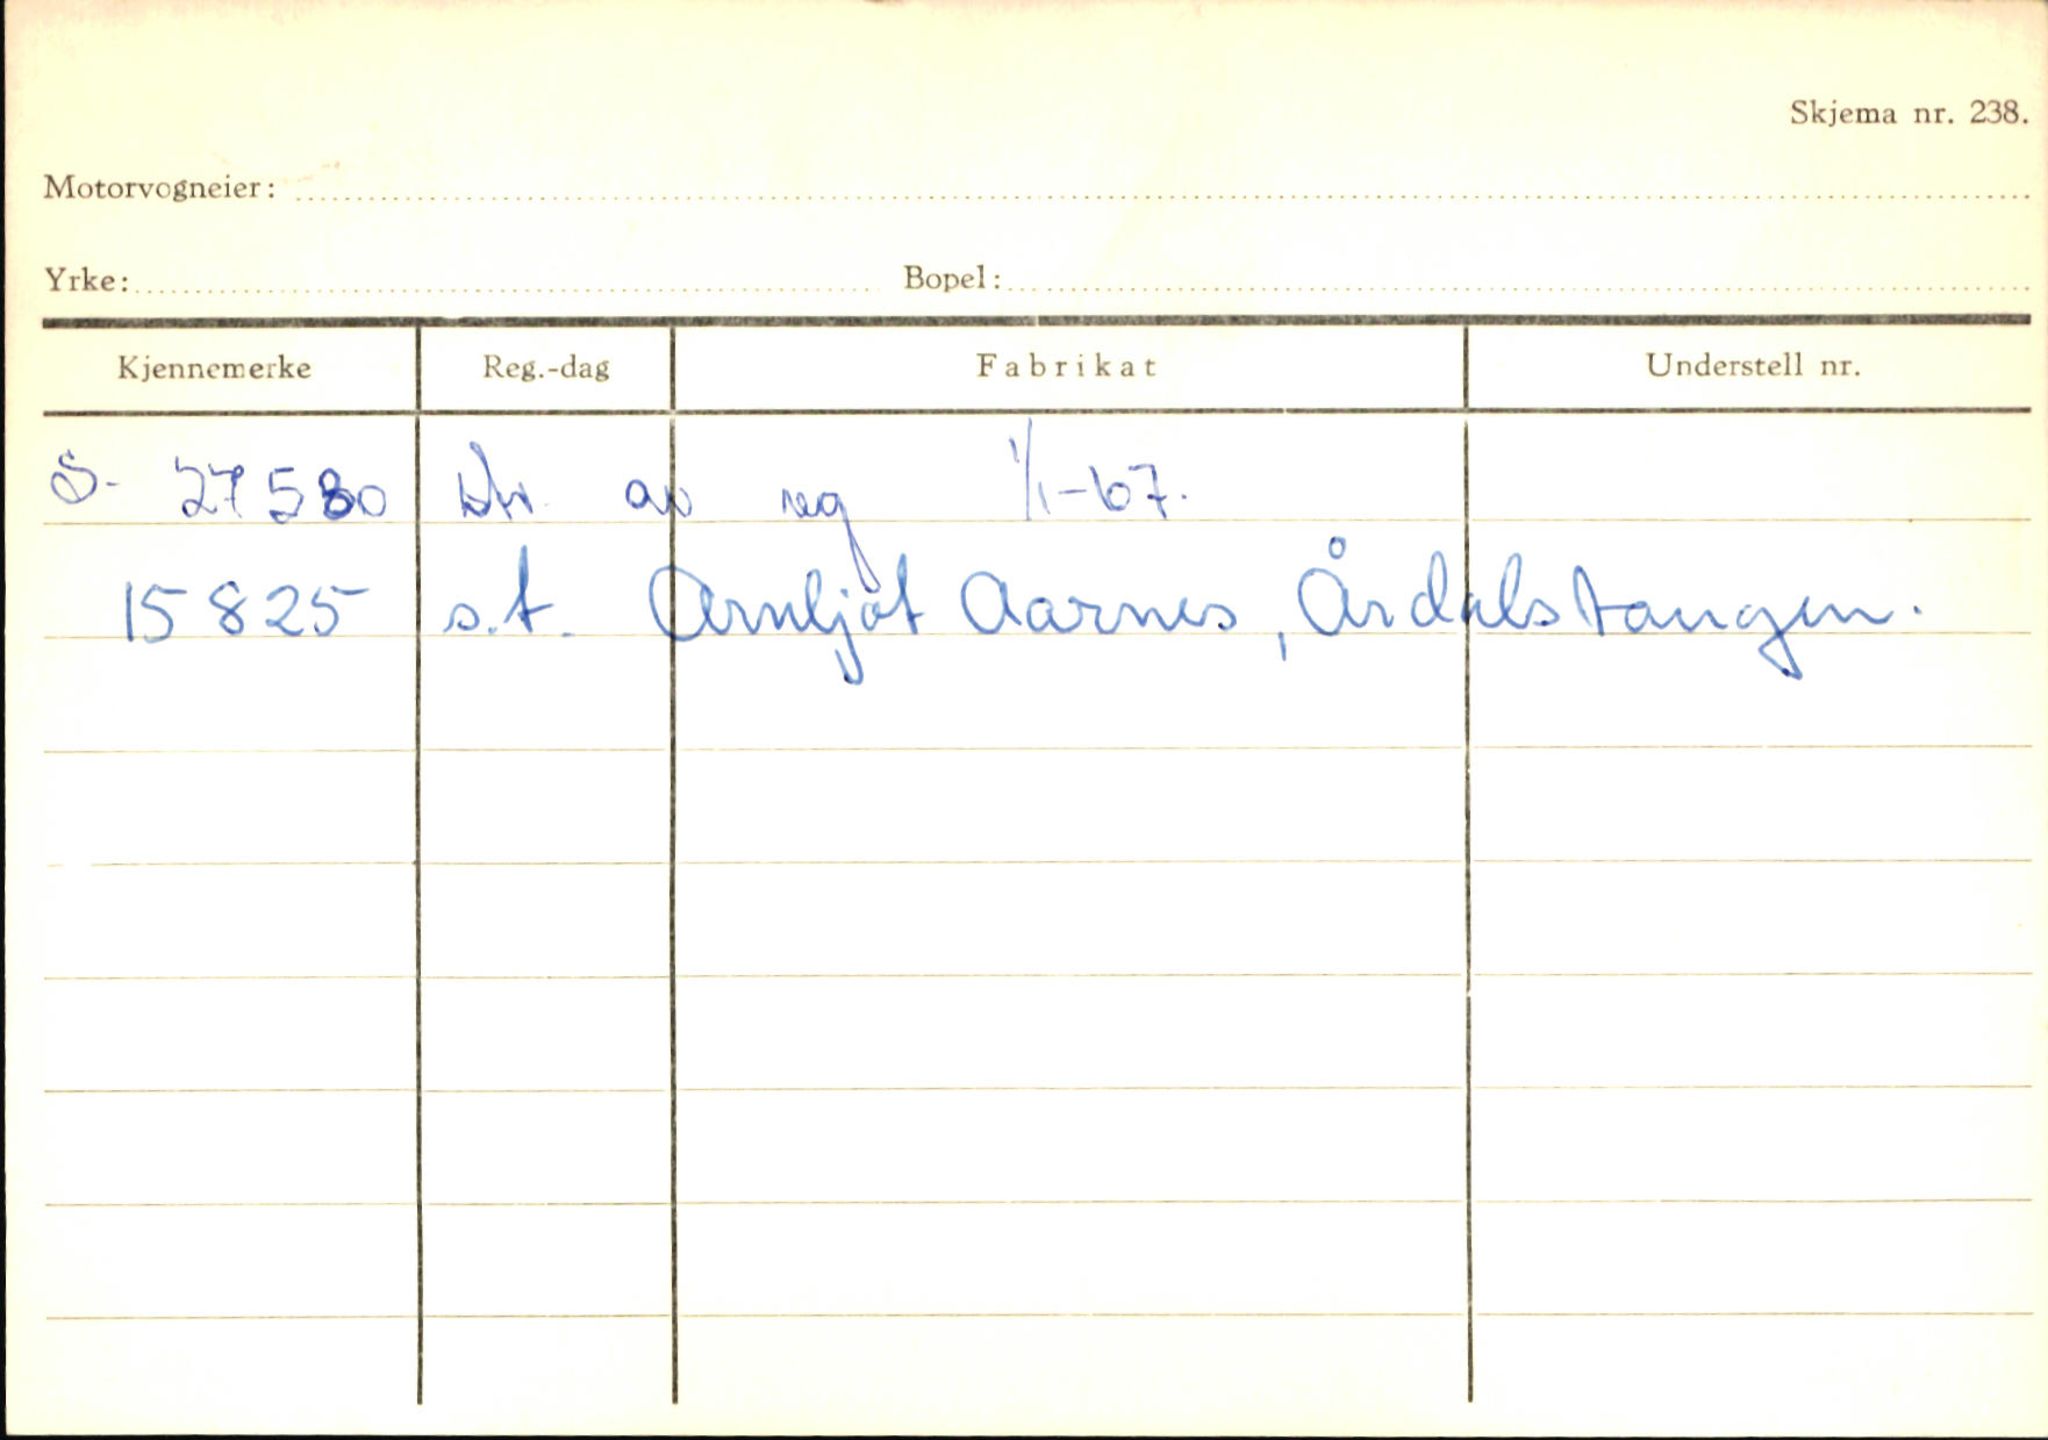 Skjema nr. 238.
Motorvogneier:
Yrke: Bopel:
Kjennemerke Reg.-dag Fabrikat Understell nr.
S- 27580 av reg 1/1-67.
15825 s.t. Arnljot Aarnes, Årdalstangen.